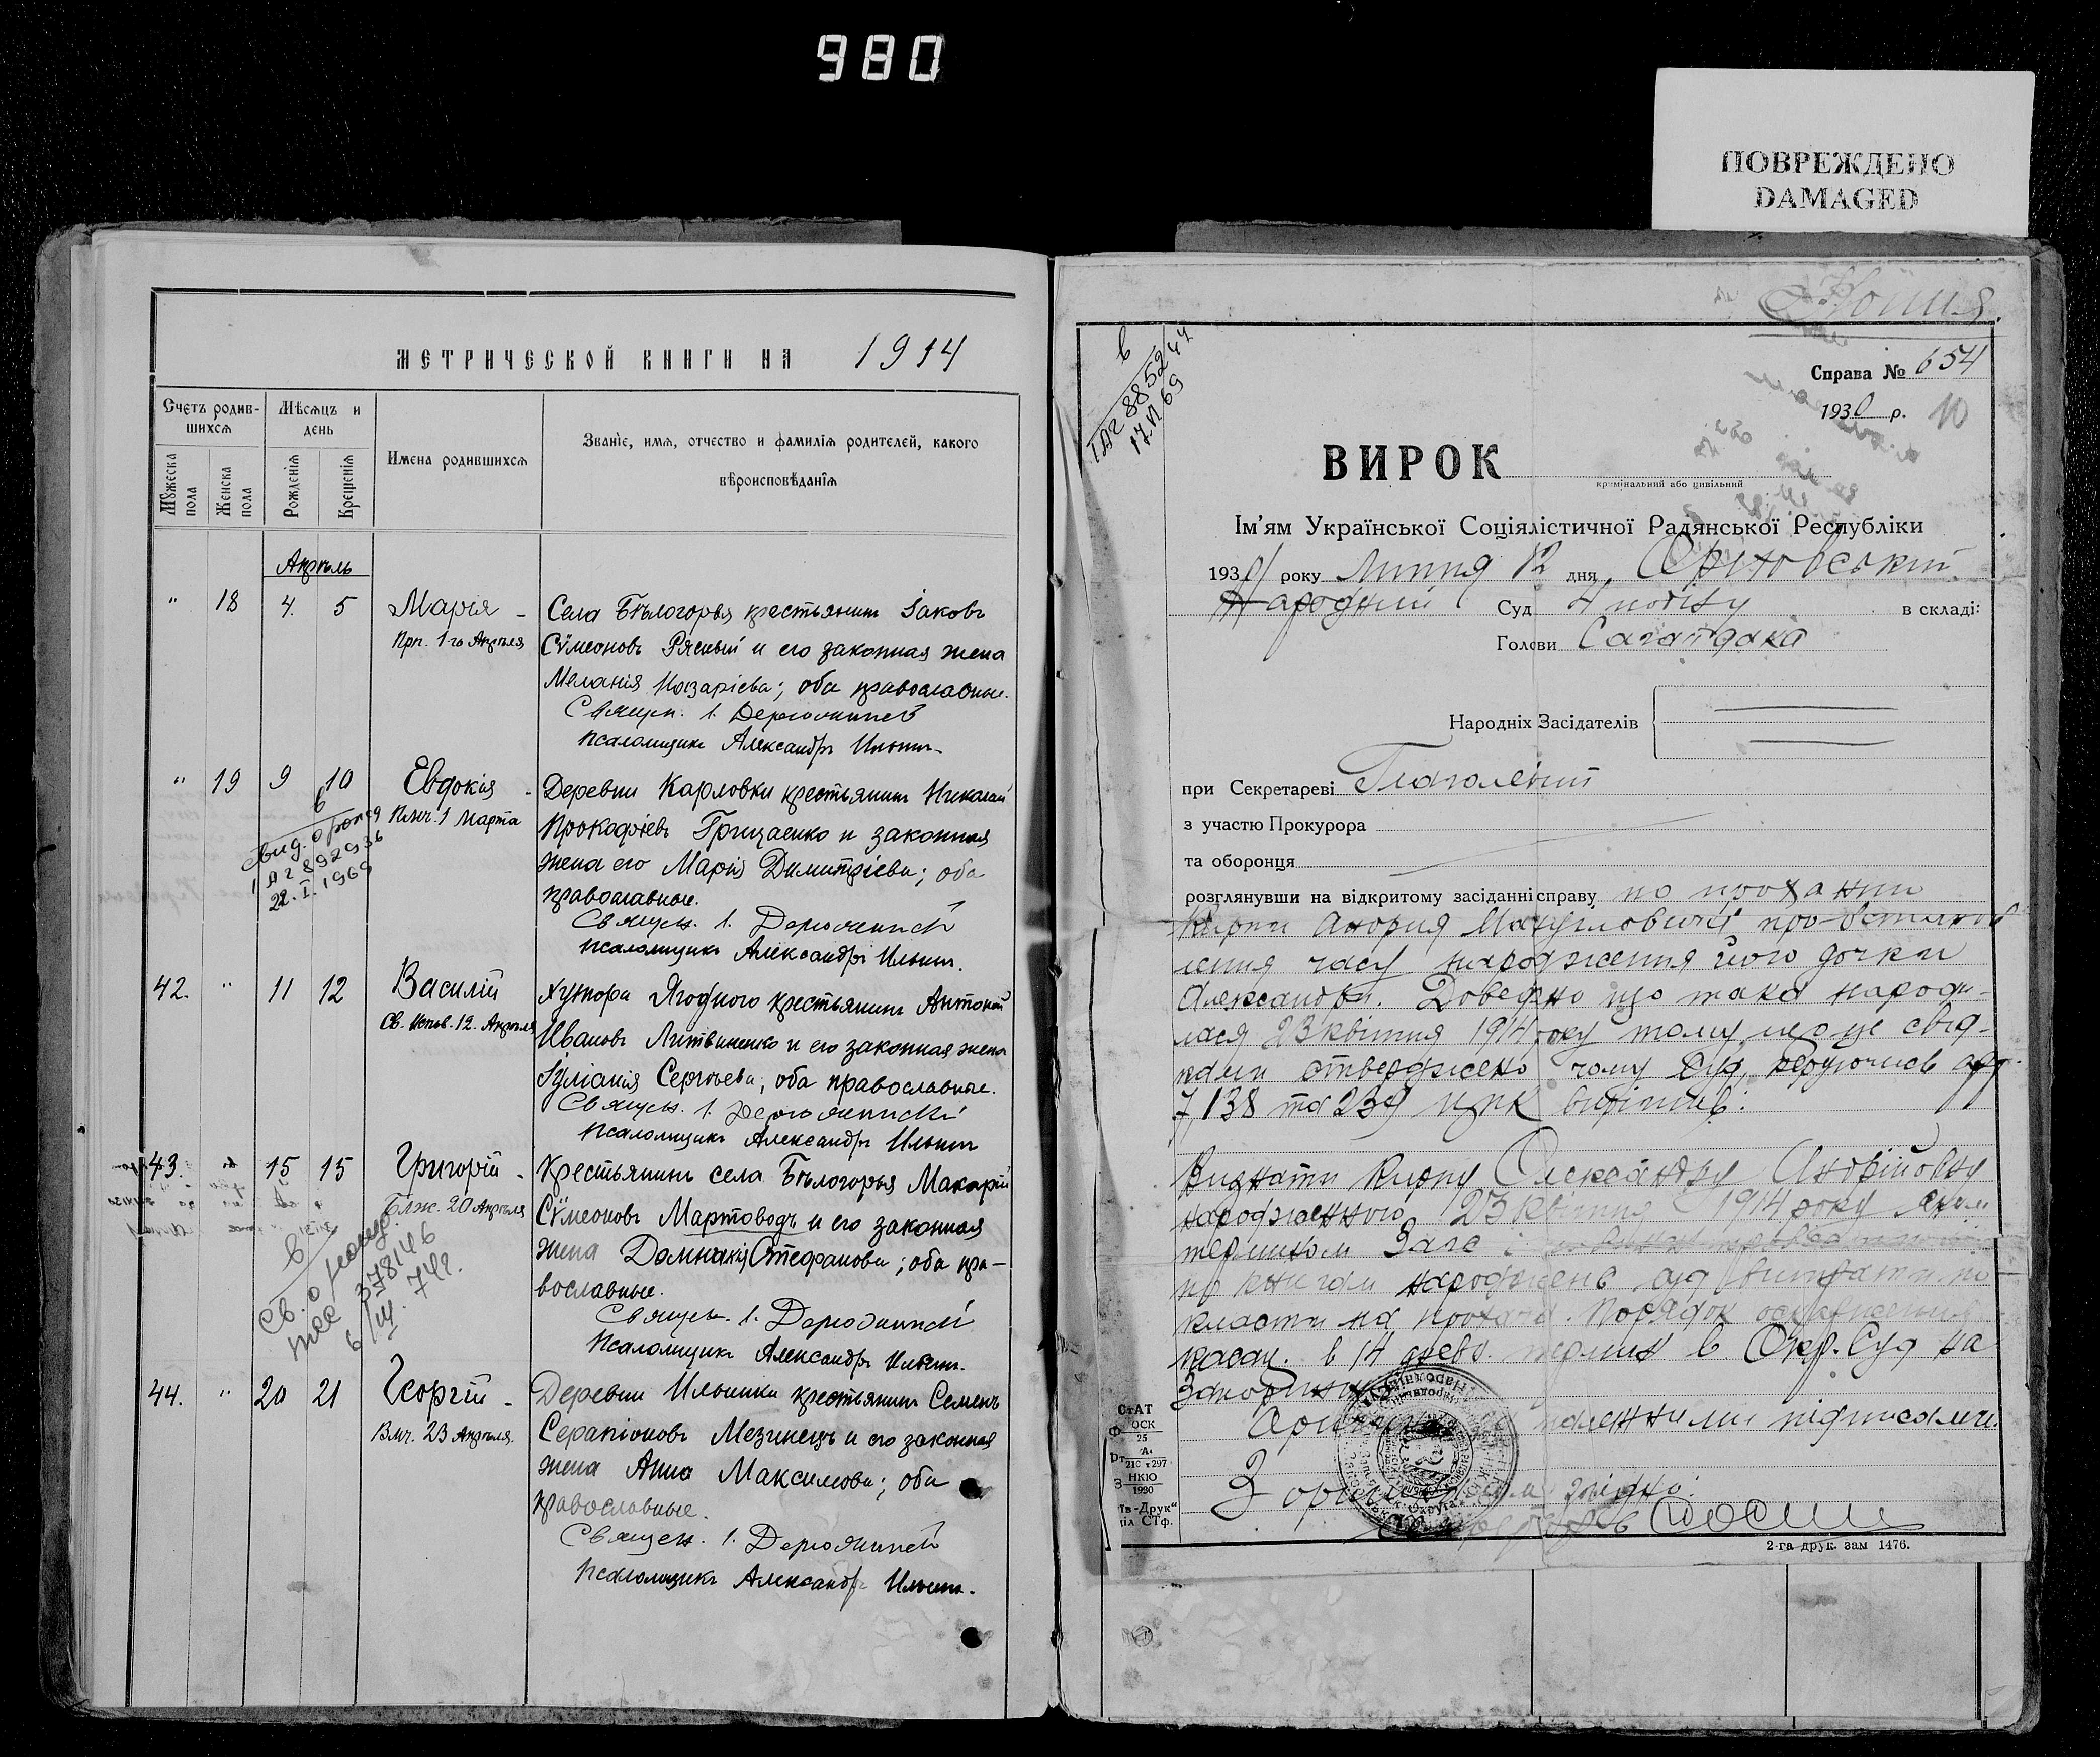 980
ПОВРЕЖДЕНО
DAMAGED
МЕТРИЧЕСКОЙ КНИГИ НА 1914
Счетъ родив-
шихся
Мужеска
пола
Женска
пола
Мѣсяцъ и
день
Рожденія
Крещенія
Имена родившихся
Званіе, имя, отчество и фамилія родителей, какого
вѣроисповѣданія
Апрѣль
" 18 4. 5 Марія
Прп. 1го Апрѣля
Села Бѣлогорья крестьянинъ Іаковъ
Сѵмеоновъ Рясный и его законная жена
Меланія Назаріева; оба православные.
Священ. І.
Псаломщикъ Александръ Ильин
" 19 9 10 Евдокія
Пмч. 1 Марта
в
свид. о рожд
1 АГ 892936
22. I. 1969
Деревни Карловки крестьянинъ Николай
Прокофіевъ Грицаенко и законная
жена его Марія Димитріева; оба
православные.
Священ. І.
Псаломщикъ Александръ Ильин.
42. " 11 12 Василій
Св. Испов. 12. Апрѣля
Хутора Ягодного крестьянинъ Антоній
Ивановъ Литвиненко и его законная жена
Іуліанія Сергѣева; оба православные.
Священ. І.
Псаломщикъ Александръ Ильин
43. 15 15 Григорій
Блж. 20 Апрѣля
в
Св. о рожд.
378146
6/III. 74г.
Крестьянинъ села Бѣлогорья Макарій
Сѵмеоновъ Мартоводъ и его законная
жена Домникія Стефанова; оба пра-
вославные.
Священ. І.
Псаломщикъ Александръ Ильин.
44. " 20 21 Георгій
Вмч. 23 Апрѣля.
Деревни Ильинки крестьянинъ Семенъ
Серапіоновъ Мезинецъ и его законная
жена Анна Максимова; оба
православные.
Священ. І.
Псаломщикъ Александръ Ильин.
Копия.
в
1АГ 885244
17.VI 69
Справа № 654
1930 р. 10
ВИРОК
кримінальний або цивільний
Ім'ям Української Соціялістичної Радянської Республіки
193 року Липня 12 дня Оріховський
Народний Суд в складі:
Голови Сагайдака
Народніх Засідателів
при Секретареві
з участю Прокурора
та оборонця
розглянувши на відкритому засіданні справу по проханню
Кирпи Андрия Мануиловича про встанов
лення часу народження його дочки
Александри. Доведено що така народи-
лася 23 квітня 1914 року тому що це свід-
ками стверджено чому Суд, керуючись арт.
7, 138 та 239 ЦПК вирішив:
Визнати Кирпу Олександру Андрійовну
народженною 23 квітня 1914 року
Загс
по книгам народжень
класти на Порядок оскарження
касац. в 14 термин в Окр. Суд на
Запоріжжя
підписами.
З оригіналом згідно:
СтАТ
ОСК
25
А4
210 х 297
НКЮ
1930
їв-Друк"
СТф.
2-га друк. зам 1476.